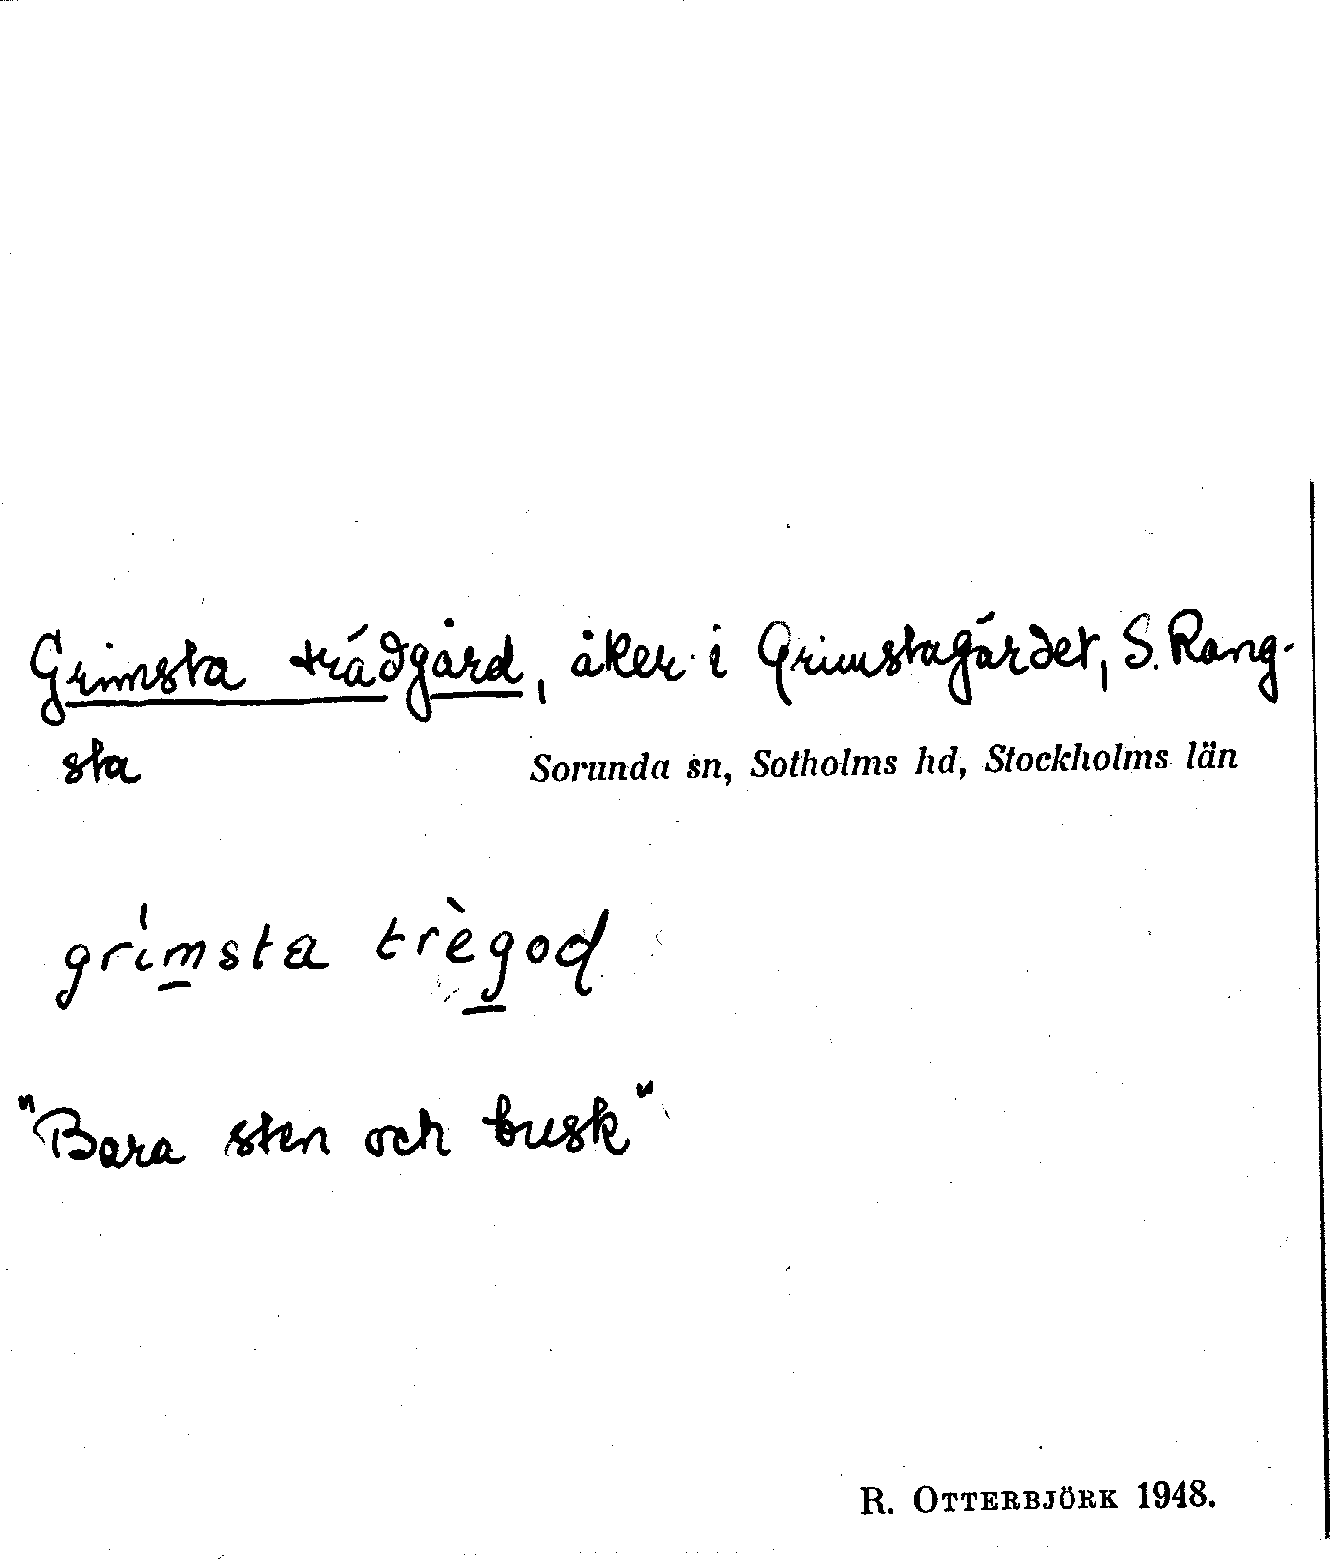 Grimsta trädgård, åker i Grimstagärdet, S. Rang-
sta
Sorunda sn, Sotholms hd, Stockholms län
grimsta trègod
"Bara sten och busk"
R. OTTERBJÖRK 1948.